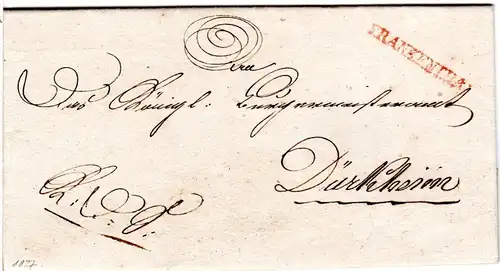 FRANKENTHAL
An
Das Königl: Bürgermeisteramt
Dürkheim
R. D. S.
1827